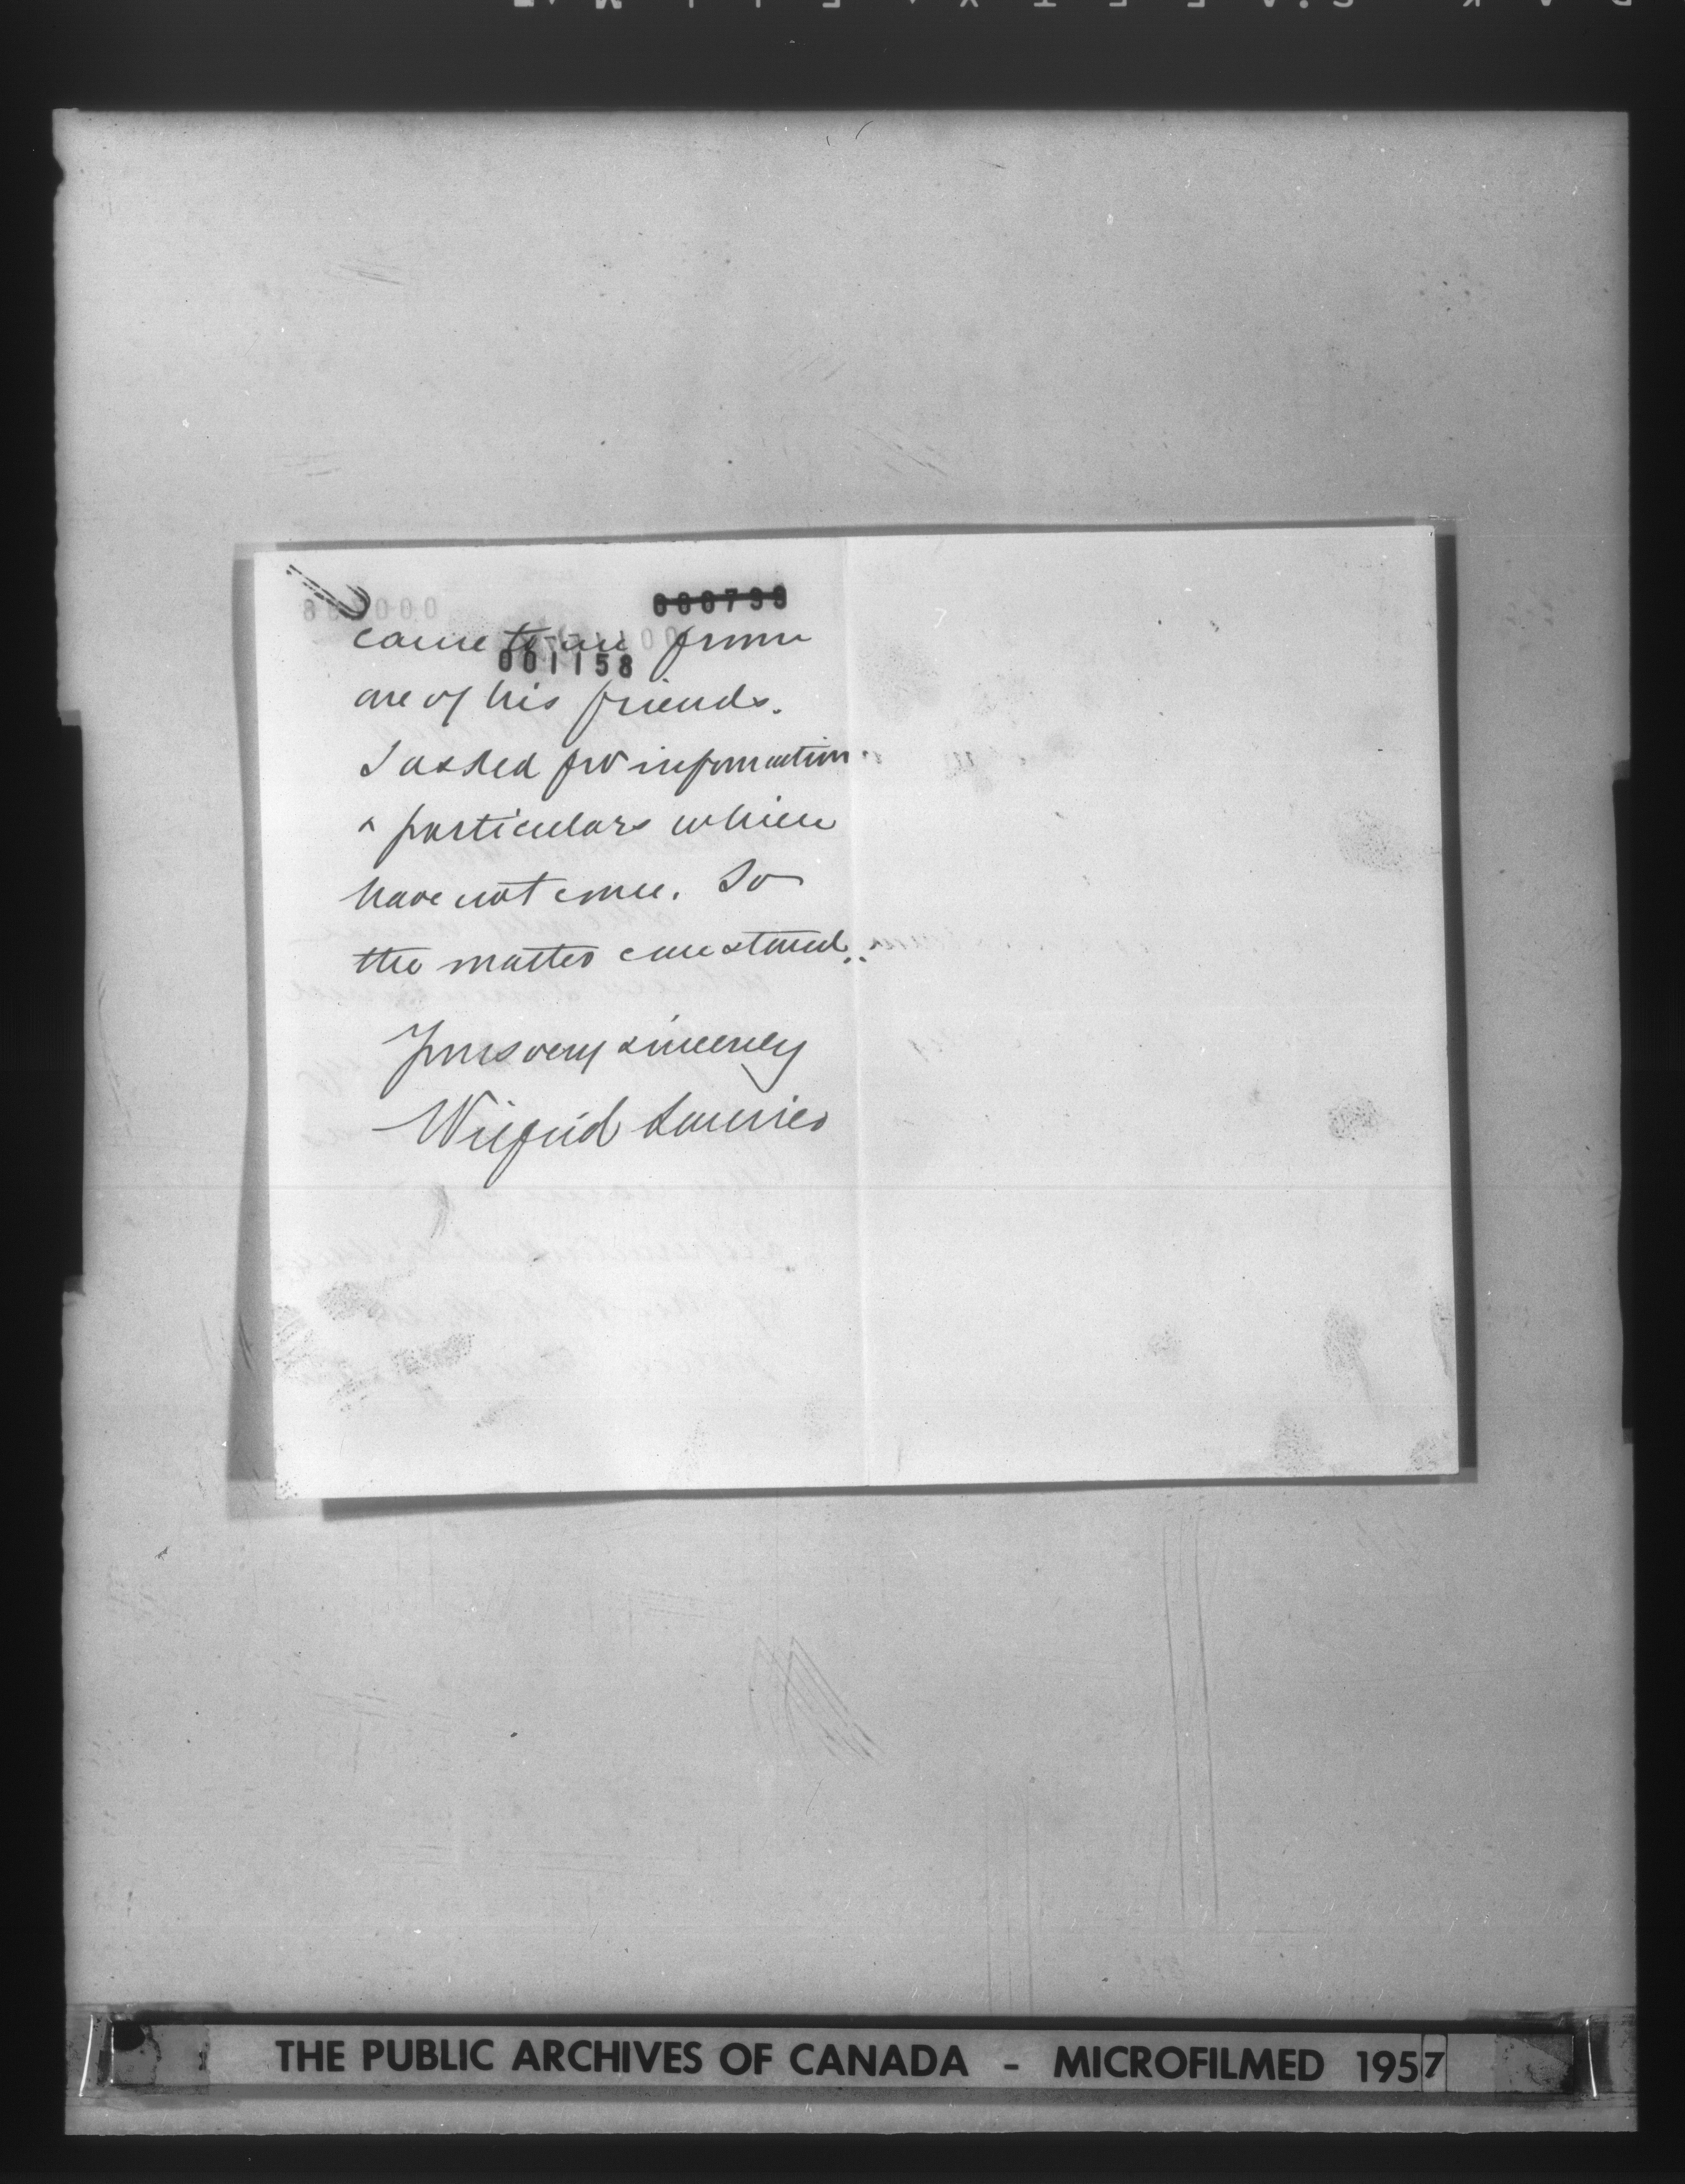 000798
came to me from
001158
one of his friends.
I asked for information
& particulars which
have not come. So
the matter can stand.
Yours very sincerely
Wilfrid Laurier
THE PUBLIC ARCHIVES OF CANADA - MICROFILMED 1957